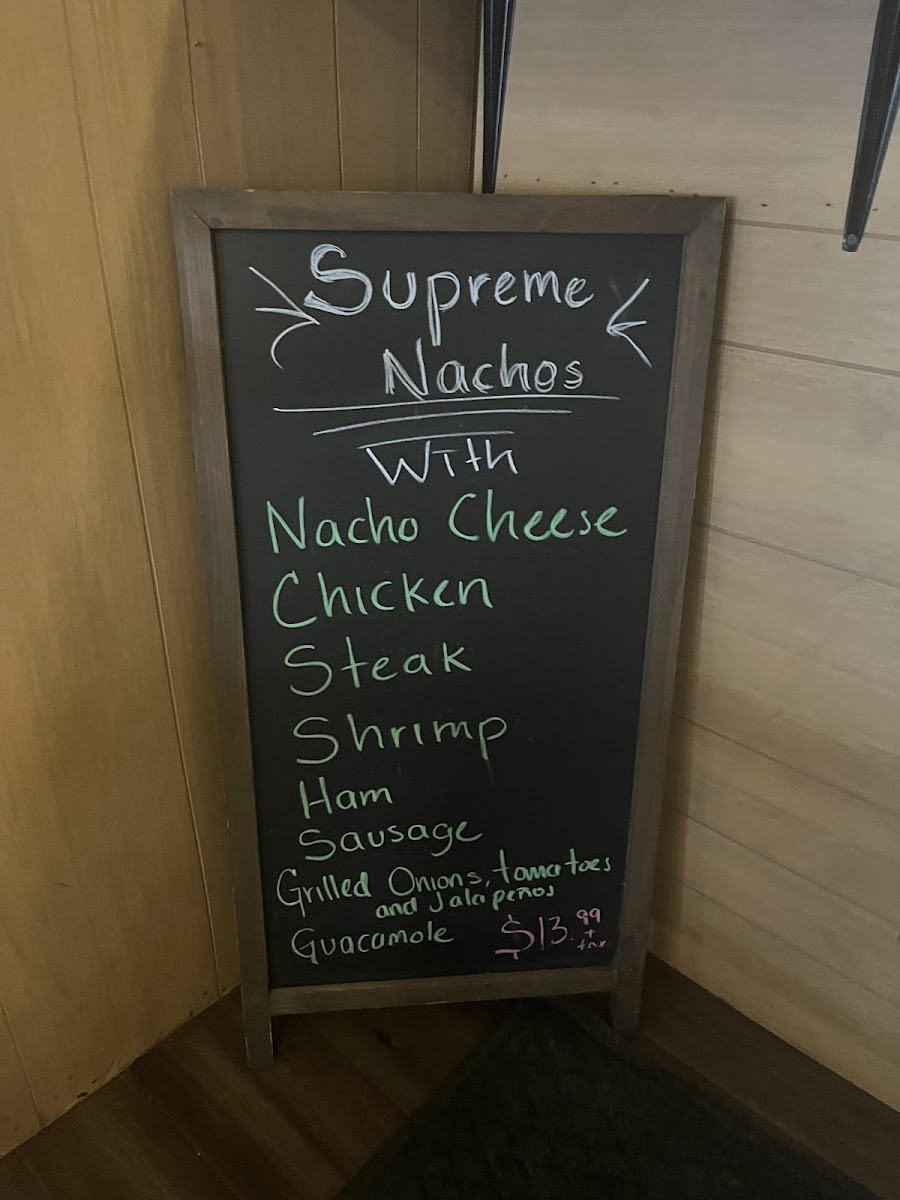 Supreme
Nachos
With
Nacho Cheese
Chicken
Steak
Shrimp
Ham
Sausage
Grilled Onions, tomatoes
and Jalapeños
Guacamole $13.99 + tax